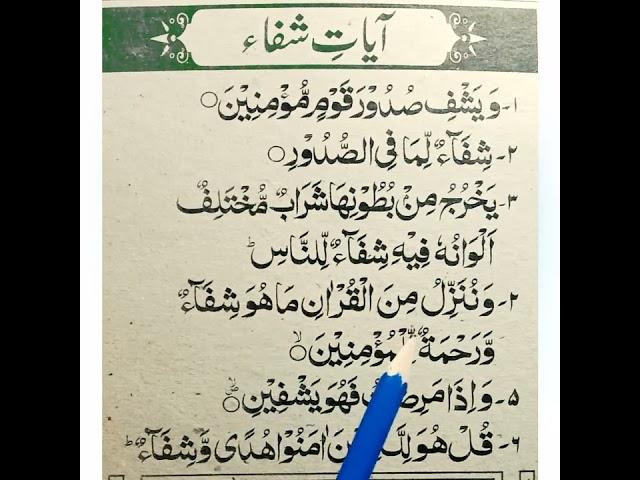 آیاتِ شفاء
۱۔ وَيَشْفِ صُدُوْرَ قَوْمٍ مُّؤْمِنِيْنَ ○
۲۔ شِفَآءٌ لِّمَا فِى الصُّدُوْرِ ○
۳۔ يَخْرُجُ مِنْۢ بُطُوْنِهَا شَرَابٌ مُّخْتَلِفٌ
اَلْوَانُهٗ فِيْهِ شِفَآءٌ لِّلنَّاسِ ؕ
۴۔ وَنُنَزِّلُ مِنَ الْقُرْاٰنِ مَا هُوَ شِفَآءٌ
وَّرَحْمَةٌ لِّلْمُؤْمِنِيْنَ ○
۵۔ وَاِذَا فَهُوَ يَشْفِيْنِ ○
۶۔ قُلْ هُوَ اٰمَنُوْا هُدًى وَّشِفَآءٌ ؕ